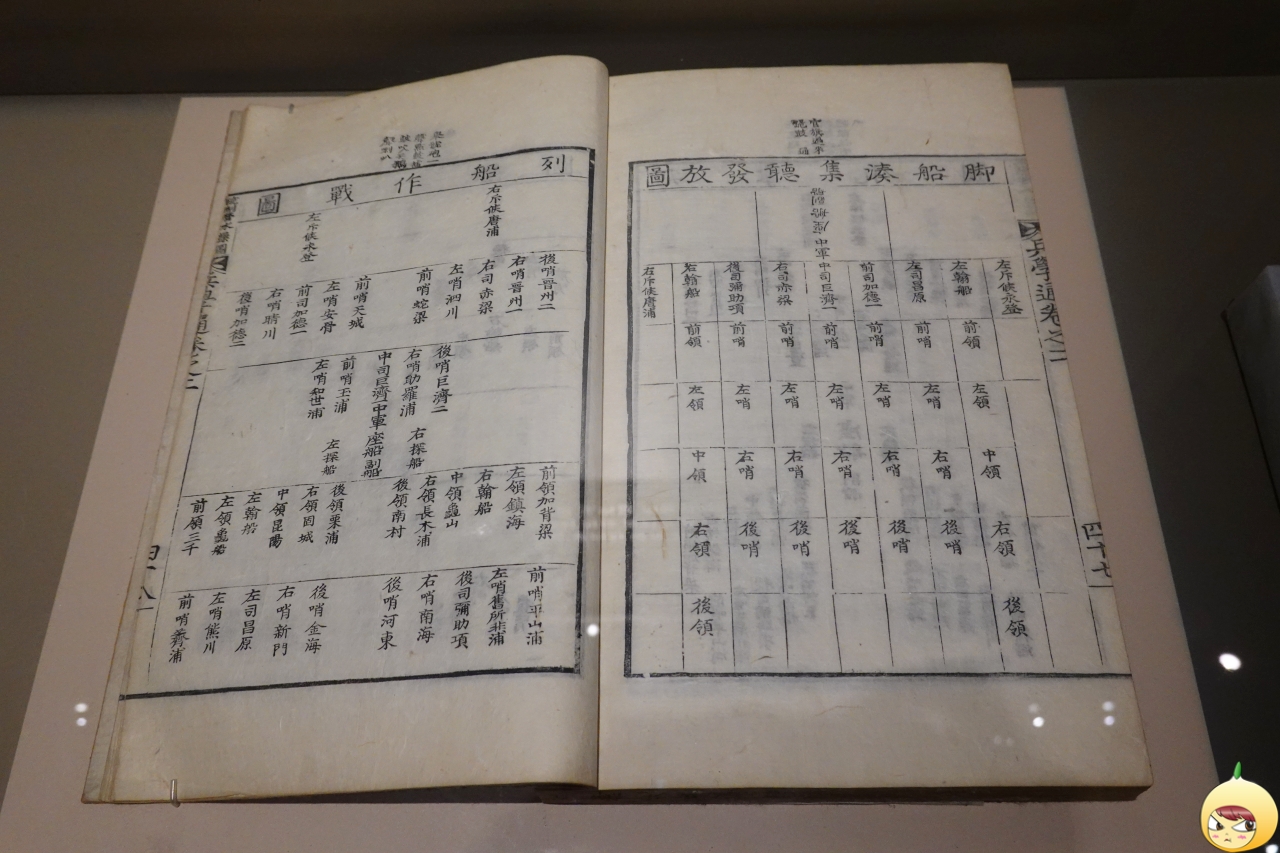 脚船湊集聽發放圖
中軍座船
左斥候永登
左翰船
左司昌原
前司加德一
中司巨濟一
右司赤梁
後司彌助項
右翰船
右斥候唐浦
前領
前哨
前哨
前哨
前哨
前哨
前領
左領
左哨
左哨
左哨
左哨
左哨
左領
中領
右哨
右哨
右哨
右哨
右哨
中領
右領
後哨
後哨
後哨
後哨
後哨
右領
後領
後領
兵學通卷之二
四十七
列船作戰圖
右斥候唐浦
左斥候永登
後哨晋州二
右哨晋州一
右司赤梁
左哨泗川
前哨蛇梁
前哨天城
左哨安骨
前司加德一
右哨晴川
後哨加德二
後哨巨濟二
右哨助羅浦
中司巨濟一中軍座船副船
前哨玉浦
左哨知世浦
右探船
左探船
前領加背梁
左領鎮海
右翰船
中領龜山
右領長木浦
後領南村
後領栗浦
右領固城
中領昆陽
左翰船
左領龜船
前領三千
前哨平山浦
左哨舊所非浦
後司彌助項
右哨南海
後哨河東
後哨金海
右哨新門
左司昌原
左哨熊川
前哨薺浦
四十八